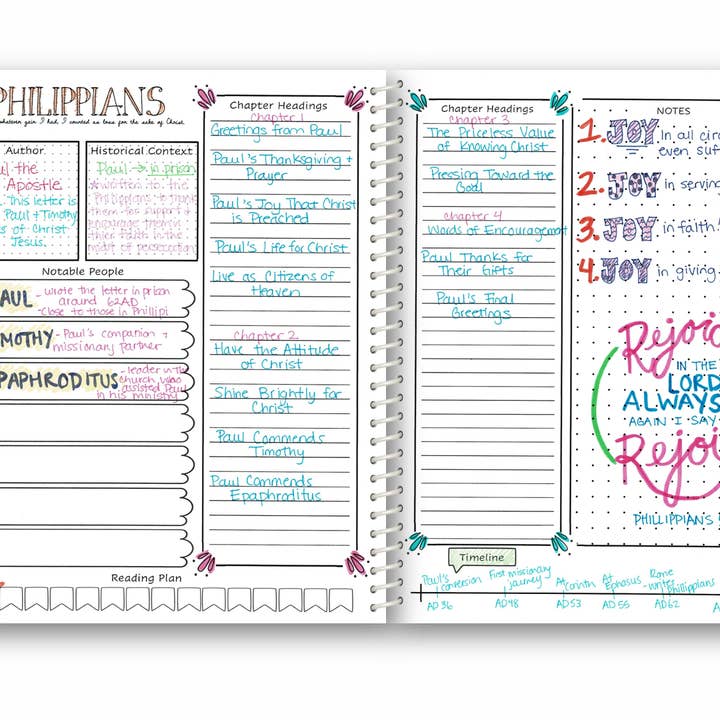 PHILIPPIANS
whatever gain I had, I counted as loss for the sake of Christ.
Author
ul the
Apostle
. this letter is
Paul + Timothy
s of Christ
Jesus.
Historical Context
Paul → in prison
* written to the
Philippians to thank
them for support &
encourage them in
their faith in the
midst of persecution
Notable People
AUL - wrote the letter in prison
around 62AD
- Close to those in Phillipi
MOTHY - Paul's companion +
missionary partner
PAPHRODITUS - leader in the
church who
assisted Paul
in his ministry
Reading Plan
Chapter Headings
Chapter 1
Greetings from Paul
Paul's Thanksgiving +
Prayer
Paul's Joy That Christ
is Preached
Paul's Life for Christ
Live as Citizens of
Heaven
Chapter 2
Have the Attitude
of Christ
Shine Brightly for
Christ
Paul Commends
Timothy
Paul Commends
Epaphroditus
Chapter Headings
chapter 3
The Priceless Value
of Knowing Christ
Pressing Toward the
Goal
chapter 4
Words of Encouragement
Paul Thanks for
Their Gifts
Paul's Final
Greetings
NOTES
1. JOY in all circ
even, suf
2. JOY in servin
3. JOY in faith!
4. JOY in giving
Rejoic
IN THE
LORD
ALWAYS
AGAIN I SAY
Rejoi
PHILLIPPIAN'S
Timeline
Paul's conversion
AD 36
First missionary journey
AD48
At Corinth
AD53
At Ephasus
AD 55
Rome - writes Philippians
AD62
A